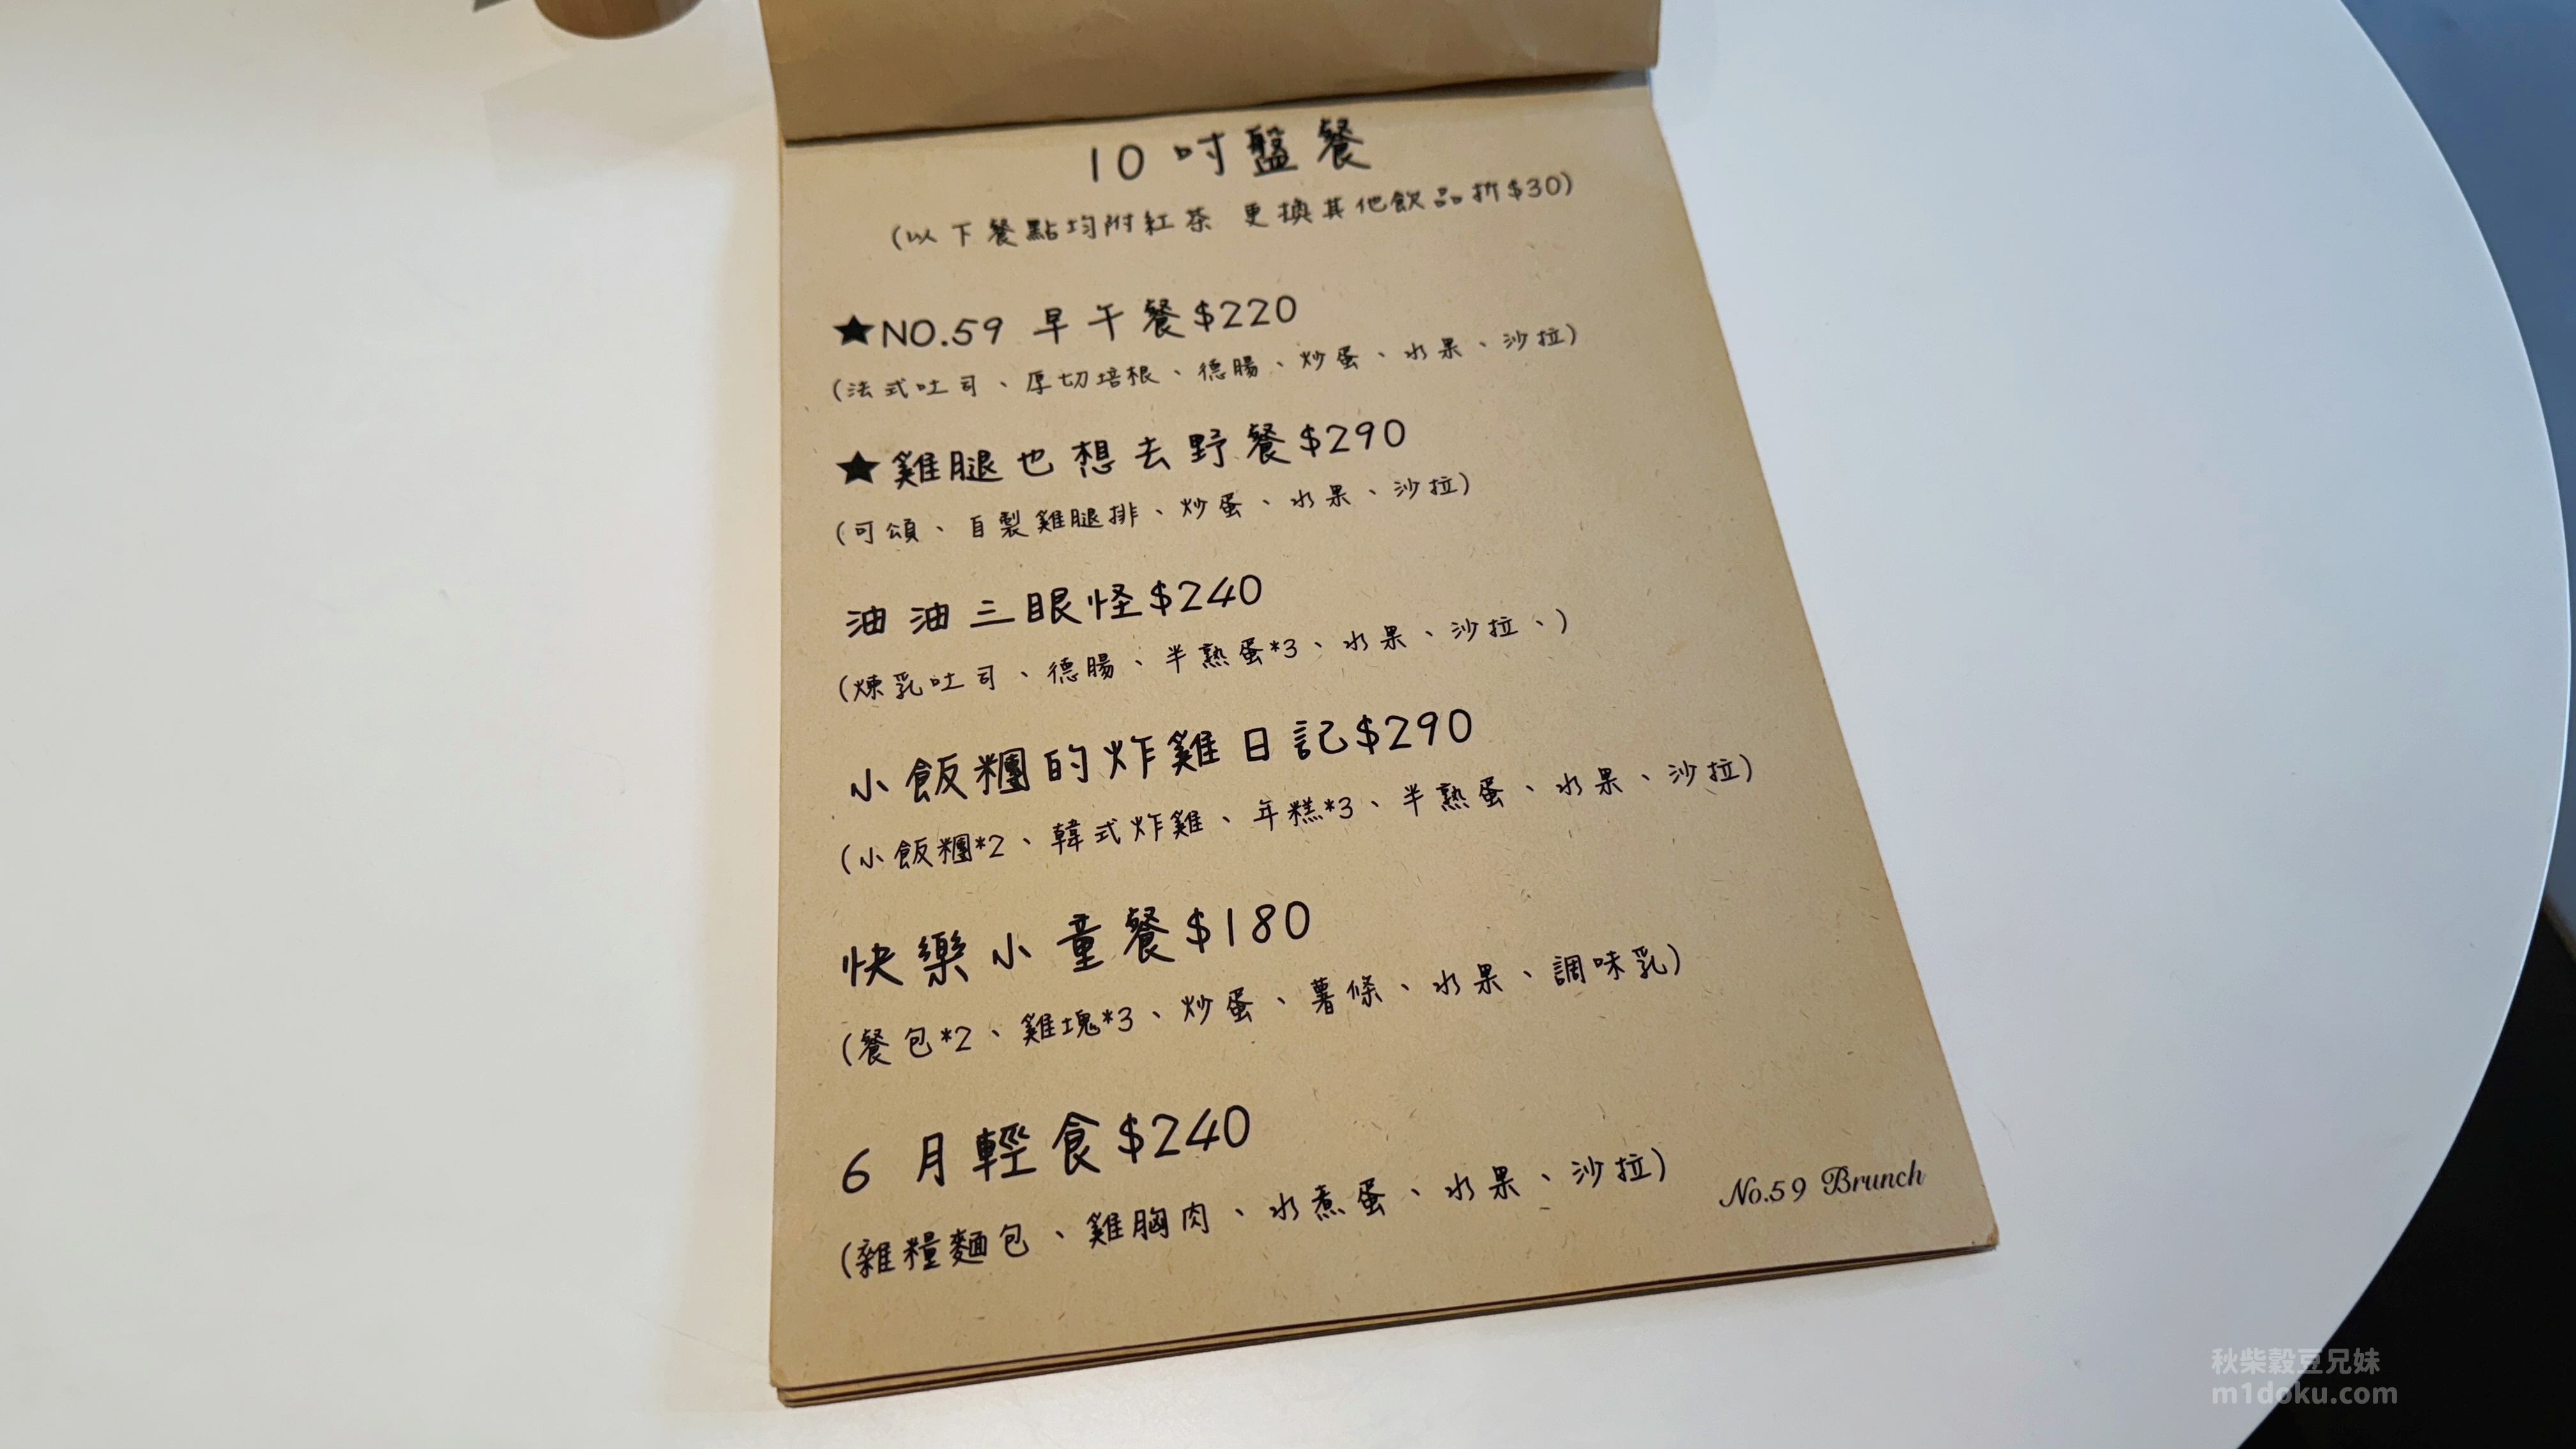 10吋盤餐
(以下餐點均附紅茶 更換其他飲品折$30)
★NO.59 早午餐$220
(法式吐司、厚切培根、德腸、炒蛋、水果、沙拉)
★雞腿也想去野餐$290
(可頌、自製雞腿排、炒蛋、水果、沙拉)
油油三眼怪$240
(煉乳吐司、德腸、半熟蛋*3、水果、沙拉、)
小飯糰的炸雞日記$290
(小飯糰*2、韓式炸雞、年糕*3、半熟蛋、水果、沙拉)
快樂小童餐$180
(餐包*2、雞塊*3、炒蛋、薯條、水果、調味乳)
6月輕食$240
(雜糧麵包、雞胸肉、水煮蛋、水果、沙拉)
No.59 Brunch
秋柴穀豆兄妹
m1doku.com